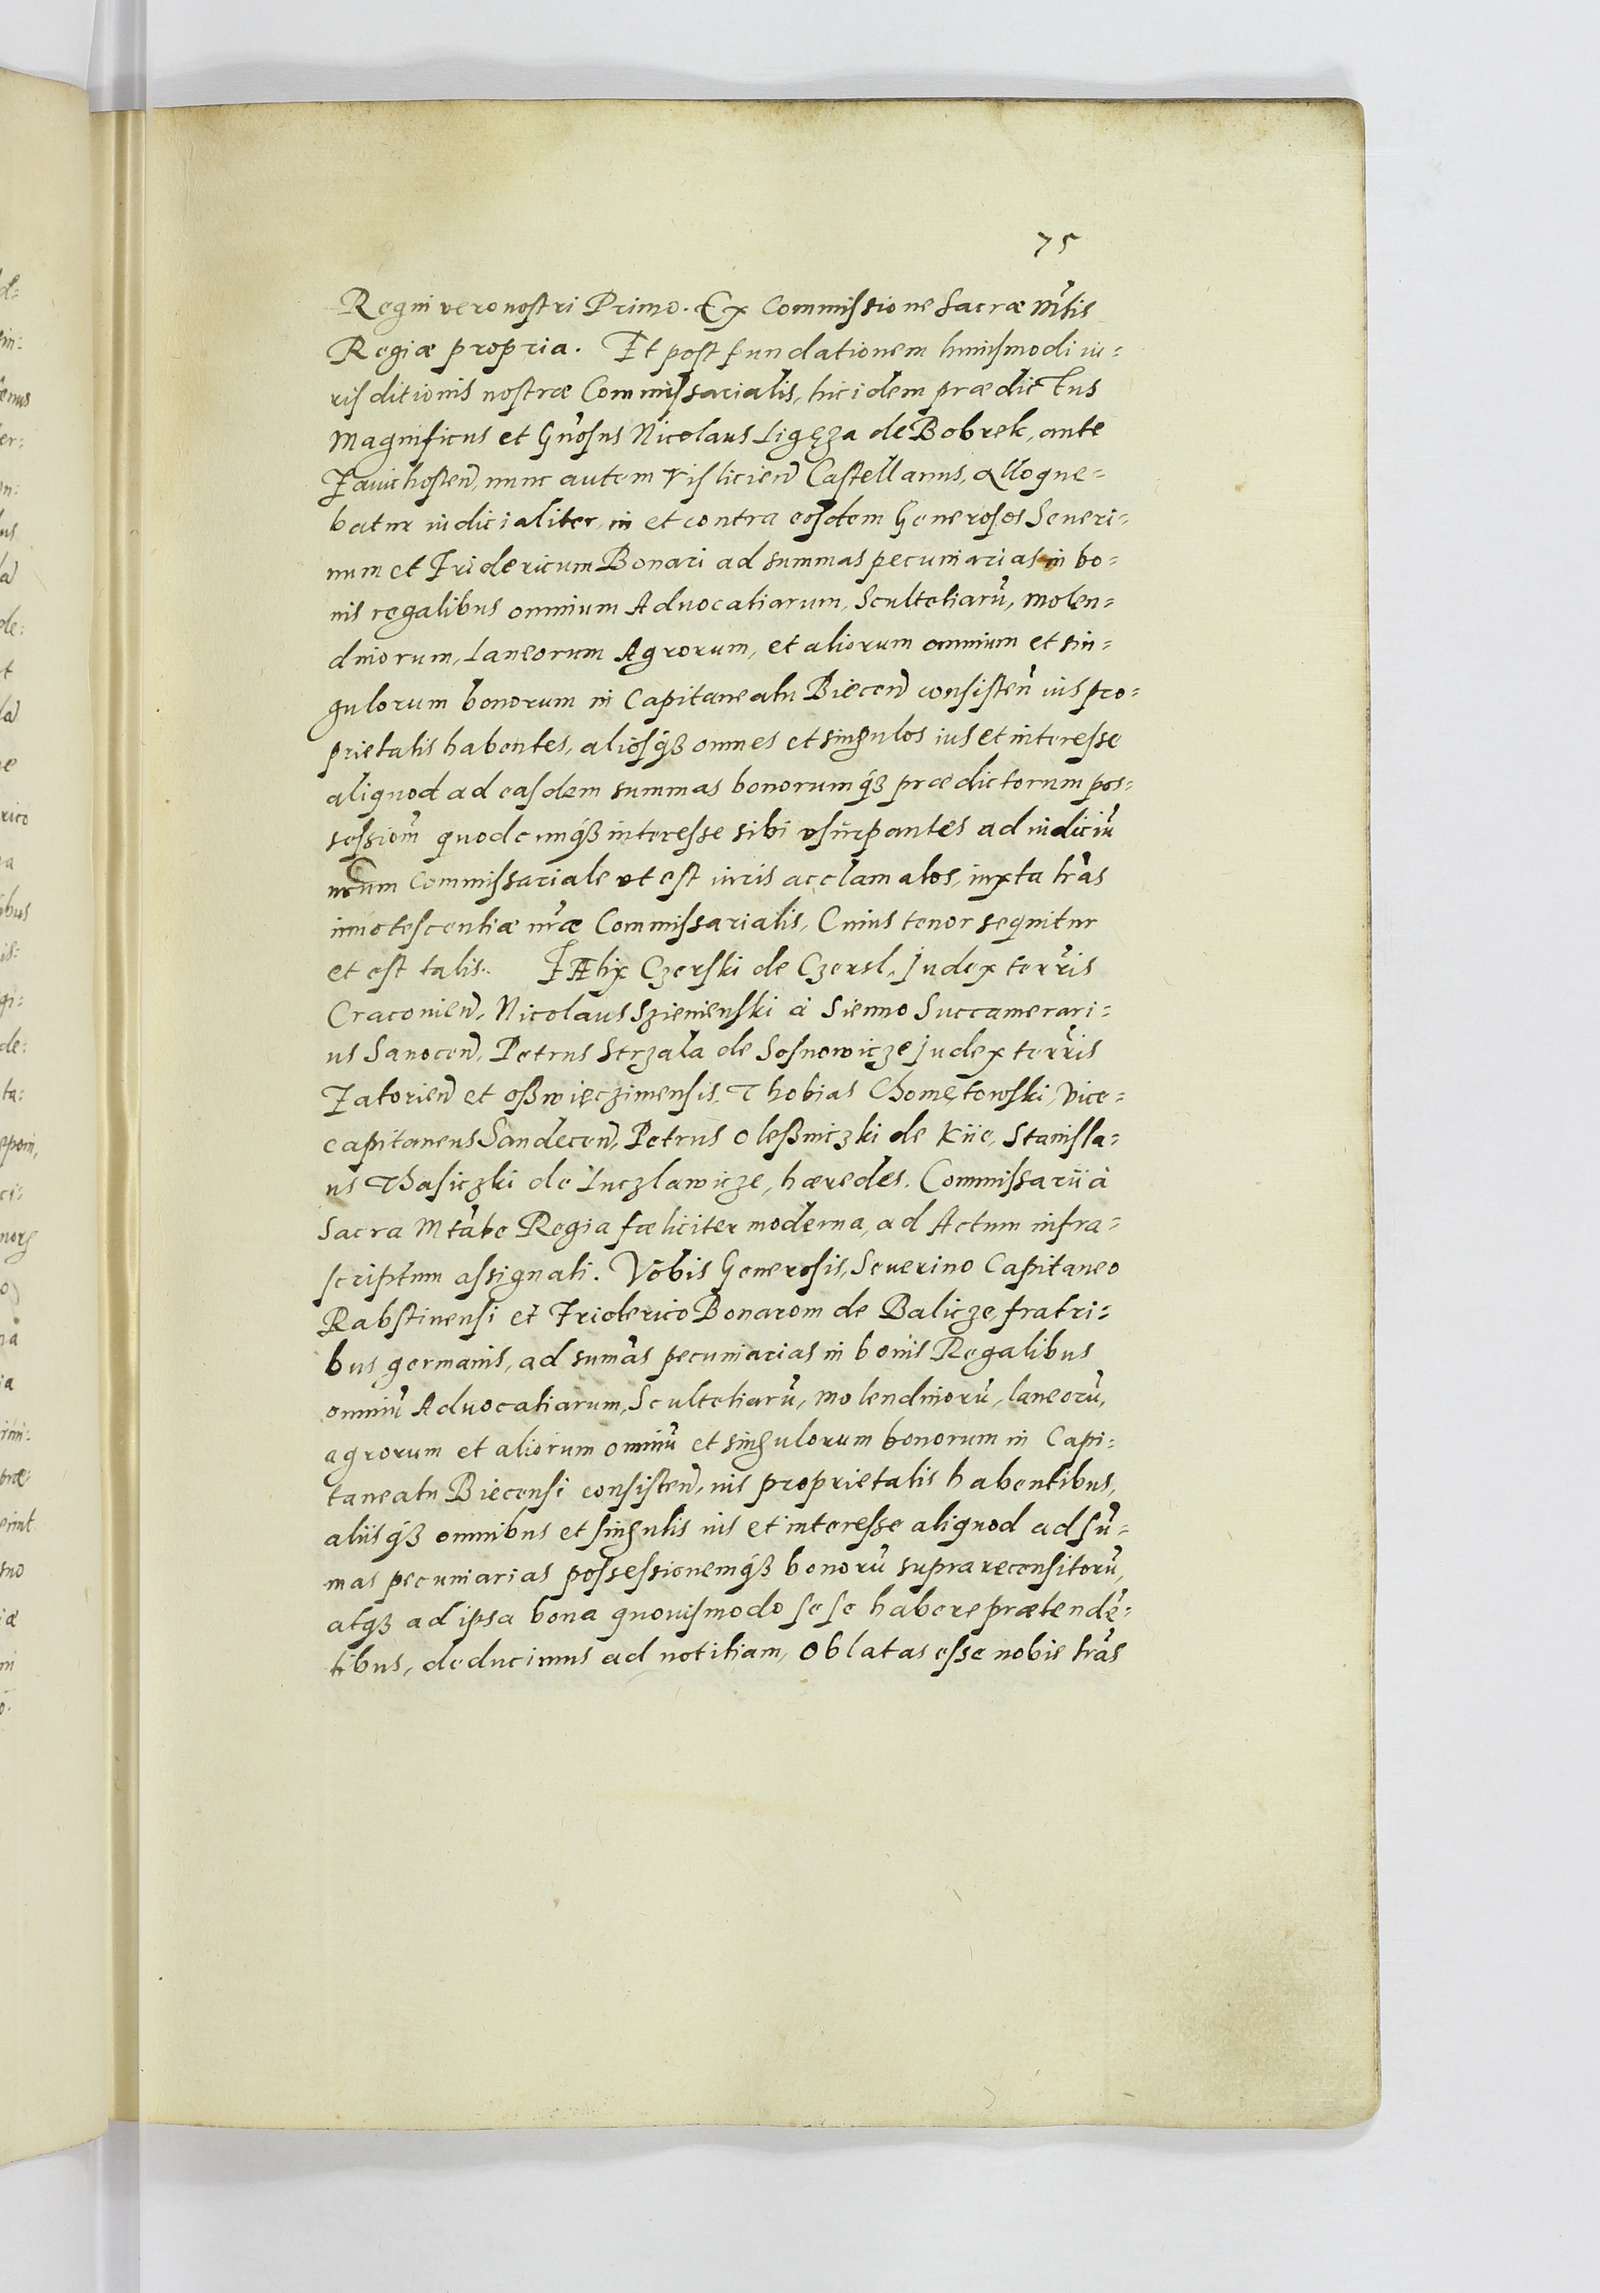 75
Regni vero nostri Primo. Ex Commissione Sacræ Mtis
Regiæ propria. Et post fundationem huiusmodi iu=
risditionis nostræ Commissarialis, hic idem prædictus
Magnificus et Gnosus Nicolaus Ligęza de Bobrek, ante
Zauichosten, nunc autem Vislicien Castellanus, alloque=
batur iudicialiter, in et contra eosdem Generosos Seueri=
num et Fridericum Bonari ad summas pecuniarias in bo=
nis regalibus omnium Aduocatiarum, Scultetiarū, molen=
dinorum, Laneorum Agrorum, et aliorum omnium et sin=
gulorum bonorum in Capitaneatu Biecen consisten ius pro=
prietatis habentes, aliosqȝ omnes et singulos ius et interesse
aliquod ad easdem summas bonorumqȝ prædictorum pos=
sessiom quodcunqȝ interesse sibi vsurpantes ad iudiciū
nrum Commissariale vt est iuris acclamatos, iuxta lras
innotescentiæ nræ Commissarialis, Cuius tenor sequitur
et est talis. FÆlix Czerski de Czersl, Judex terris
Cracouien, Nicolaus Szienienski à Sienno Succamerari=
us Sanocen, Petrus Strzala de Sosnowicze Judex terris
Zatorien et Oßwięczimensis. Thobias Chomętowski, Vice=
capitaneus Sandecen, Petrus Oleßniczki de Kije, Stanisla=
us Thasiczki de Luczlawicze, hæredes. Commissarii à
Sacra Mtate Regia fæliciter moderna, ad Actum infra=
scriptum assignati. Vobis Generosis, Seuerino Capitaneo
Rabstinensi et Friderico Bonarom de Balicze, fratri=
bus germanis, ad sumas pecuniarias in bonis Regalibus
omniū Aduocatiarum, Scultetiarū, molendinorū, laneorū,
agrorum et aliorum omniū et singulorum bonorum in Capi=
taneatu Biecensi consisten, ius proprietatis habentibus,
aliisqȝ omnibus et singulis ius et interesse aliquod ad sū=
mas pecuniarias possessionemqȝ bonorū suprarecensitorū,
atqȝ ad ipsa bona quouismodo sese habere prætendē=
tibus, deducimus ad notitiam, Oblatas esse nobis lras